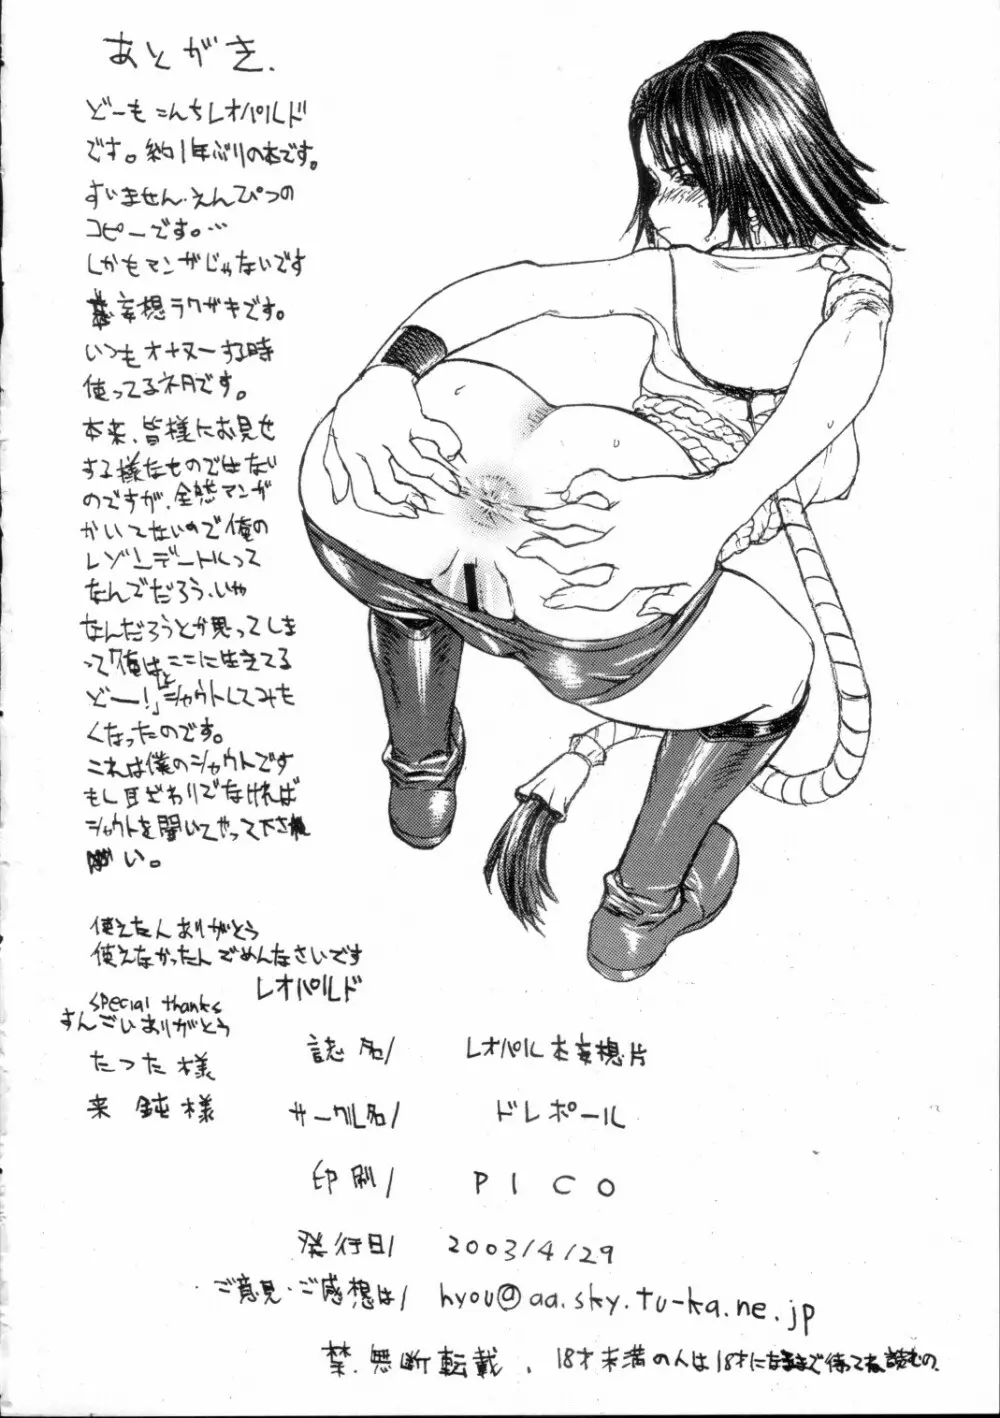 あとがき.
どーもこんちレオパルド
です。約1年ぶりの本です。
すいません、えんぴつの
コピーです。…
しかもマンガじゃないです
妄想ラクガキです。
いつもオナヌーする時
使ってるネタです。
本来、皆様にお見せ
する様なものではない
のですが、全然マンガ
かいてないので俺の
レゾンデートルって
なんでだろう、いや
なんだろうとか思ってしま
って「俺はここに生えてる
ぞー!」とシャウトしてみた
くなったのです。
これは僕のシャウトです
もし耳ざわりでなければ
シャウトを聞いてやって下され
い。
使えたんありがとう
使えなかったんごめんなさいです
レオパルド
special thanks
すんごいありがとう
たつた様
来鈍様
誌名/ レオパル本妄想片
サークル名/ ドレポール
印刷/ PICO
発行日/ 2003/4/29
ご意見・ご感想は/ hyou@aa.sky.tu-ka.ne.jp
禁・無断転載. 18才未満の人は18才になるまで待ってね、読むの.